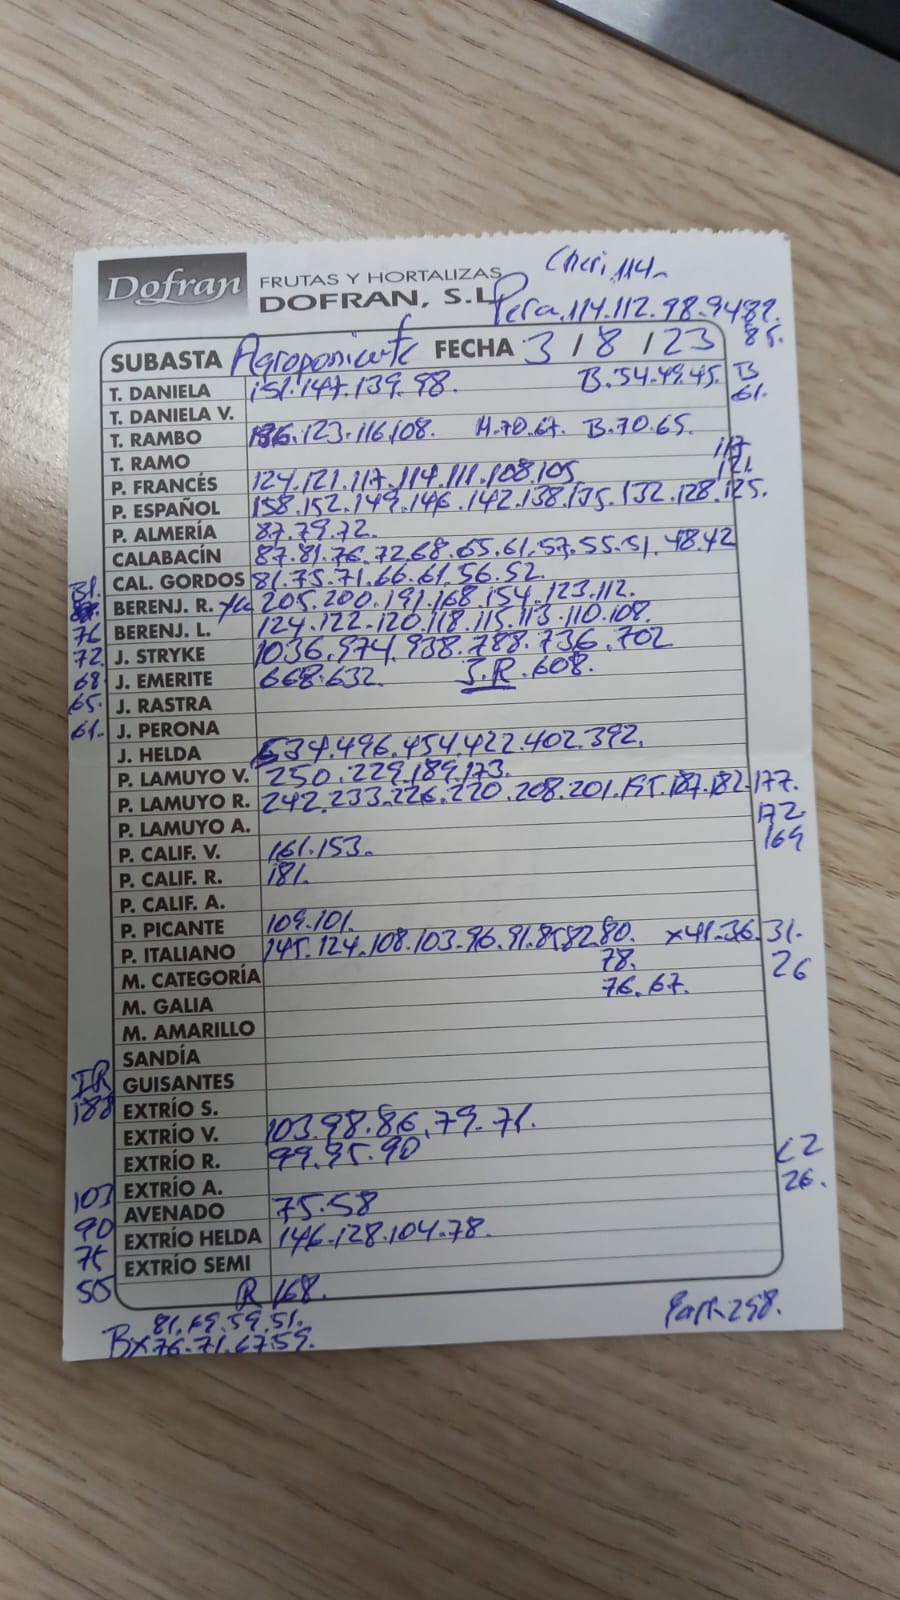 Cheri, 114
Dofran FRUTAS Y HORTALIZAS
DOFRAN, S.L.
Pera. 114.112.98.94.89.
85.
SUBASTA Agroponiente FECHA 3/8/23
T. DANIELA 151.147.139.98. B.54.49.45. B
61.
T. DANIELA V.
T. RAMBO 186.123.116.108. M.70.67. B.70.65.
T. RAMO 117
P. FRANCÉS 124.121.117.114.111.108.105 121.
P. ESPAÑOL 158.152.149.146.142.138.135.132.128.125.
P. ALMERÍA 87.79.72.
CALABACÍN 87.81.76.72.68.65.61.57.55.51.48.42
CAL. GORDOS 81.75.71.66.61.56.52.
BERENJ. R. 205.200.191.168.154.123.112.
76 BERENJ. L. 124.122.120.118.115.113.110.108.
72 J. STRYKE 1036.974.938.788.736.702
68 J. EMERITE 668.632. J.R.608.
65. J. RASTRA
61. J. PERONA
J. HELDA 534.496.454.422.402.392.
P. LAMUYO V. 250.229.189.173.
P. LAMUYO R. 242.233.226.220.208.201.195.187.182.177.
P. LAMUYO A. 172
169
P. CALIF. V. 161.153.
P. CALIF. R. 181.
P. CALIF. A.
P. PICANTE 109.101.
P. ITALIANO 145.124.108.103.96.91.85.82.80. x41.36.31.
78. 26
M. CATEGORÍA
76.67.
M. GALIA
M. AMARILLO
SANDÍA
IR GUISANTES
188 EXTRÍO S.
EXTRÍO V. 103.98.86.79.71.
EXTRÍO R. 99.95.90
C2
26.
103 EXTRÍO A.
90 AVENADO 75.58
75 EXTRÍO HELDA 146.128.104.78.
55 EXTRÍO SEMI
R 168.
81.69.59.51.
Bx76.71.67.59.
298.